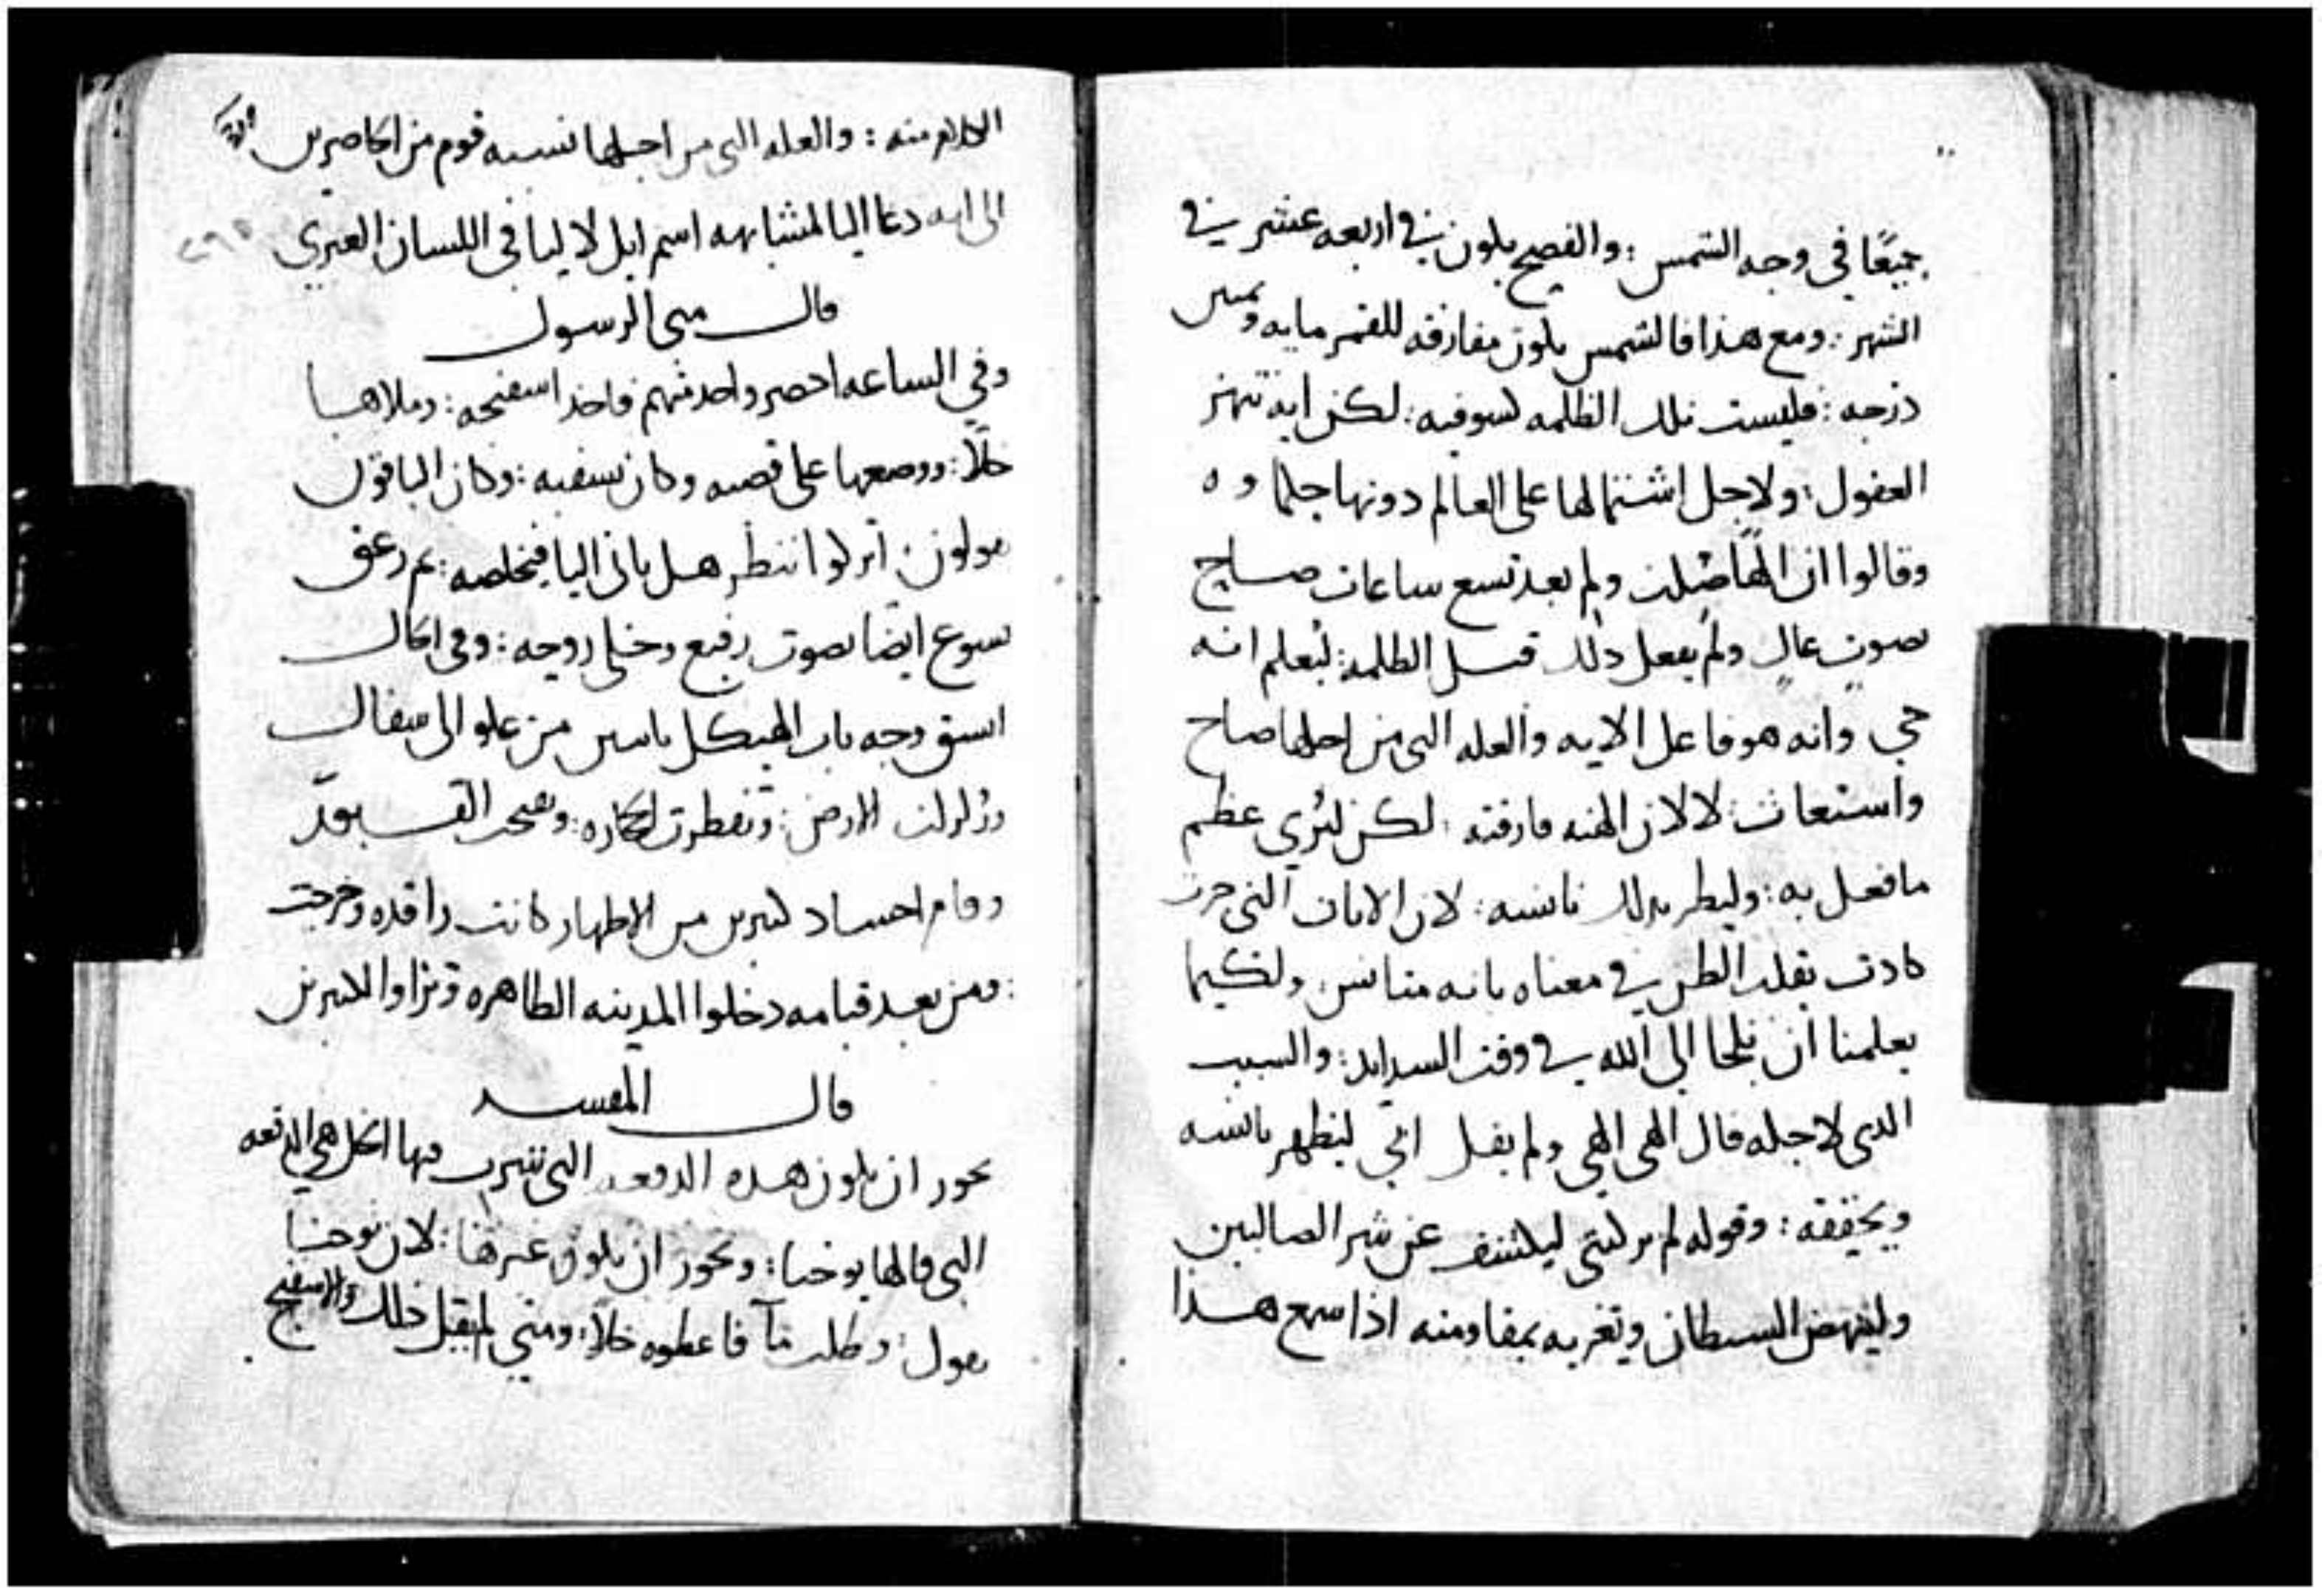 جميعًا في وجه الشمس : والفصح يكون في اربعه عشر في
الشهر : ومع هذا فالشمس يكون مفارقه للقمر مايه وثمنين
درجه : فليست تلك الظلمه كسوفيه : لكن ايه تبهر
العقول : ولاجل اشتمالها على العالم دونها جلما و ه
وقالوا ان الهًا صُلب ولم بعد تسع ساعات صاح
بصوتٍ عالٍ ولم يفعل ذلك قبل الظلمه : ليُعلم انه
حي وانه هو فاعل الايه والعله التي من اجلها صاح
واستغاث : لا لان الهته فارقته : لكن ليُري عظم
ما فعل به : وليظهر بذلك تانسه : لان الايات التي جرت
كادت تقلب الظن في معناه بانه متانس : ولكيما
يعلمنا ان نلجا الى الله في وقت الشدايد : والسبب
الدى لاجله قال الهي الهي ولم يقل ابي ليظهر تانسه
ويحققه : وقوله لم تركتني ليكشف عن شر الصالبين
ولينهض الشيطان ويغريه بمقاومته اذا سمع هذا
الكلام منه : والعله التي من اجلها نسبه قوم من الحاضرين
الى انه دعا اليا لمشابهه اسم ايل لاليا في اللسان العبري
قال متى الرسول
وفي الساعه احضر واحد منهم فاخذ اسفنجه : وملاها
خلًا : ووضعها على قصبه وكان يسقيه : وكان الباقون
يقولون : اتركوا ننظر هل ياتي اليا فيخلصه : ثم زعق
يسوع ايضًا بصوت رفيع وخلى روحه : وفي الحال
انشق وجه باب الهيكل باثنين من علو الى سفال
وزلزلت الارض : وتفطرت الحجاره : وتفتحت القبور
وقام اجساد كثيرين من الاطهار كانت راقده وخرجت
: ومن بعد قيامه دخلوا المدينه الطاهره وتراوا لكثيرين
قال المفسر
يجوز ان يكون هذه الدفعه التي شرب فيها الخل هي الدفعه
التي قالها يوحنا : ويجوز ان يكون غيرها : لان يوحنا
يقول : وطلب مآ فاعطوه خلًا : ومتي لم يقل ذلك والاسفنج